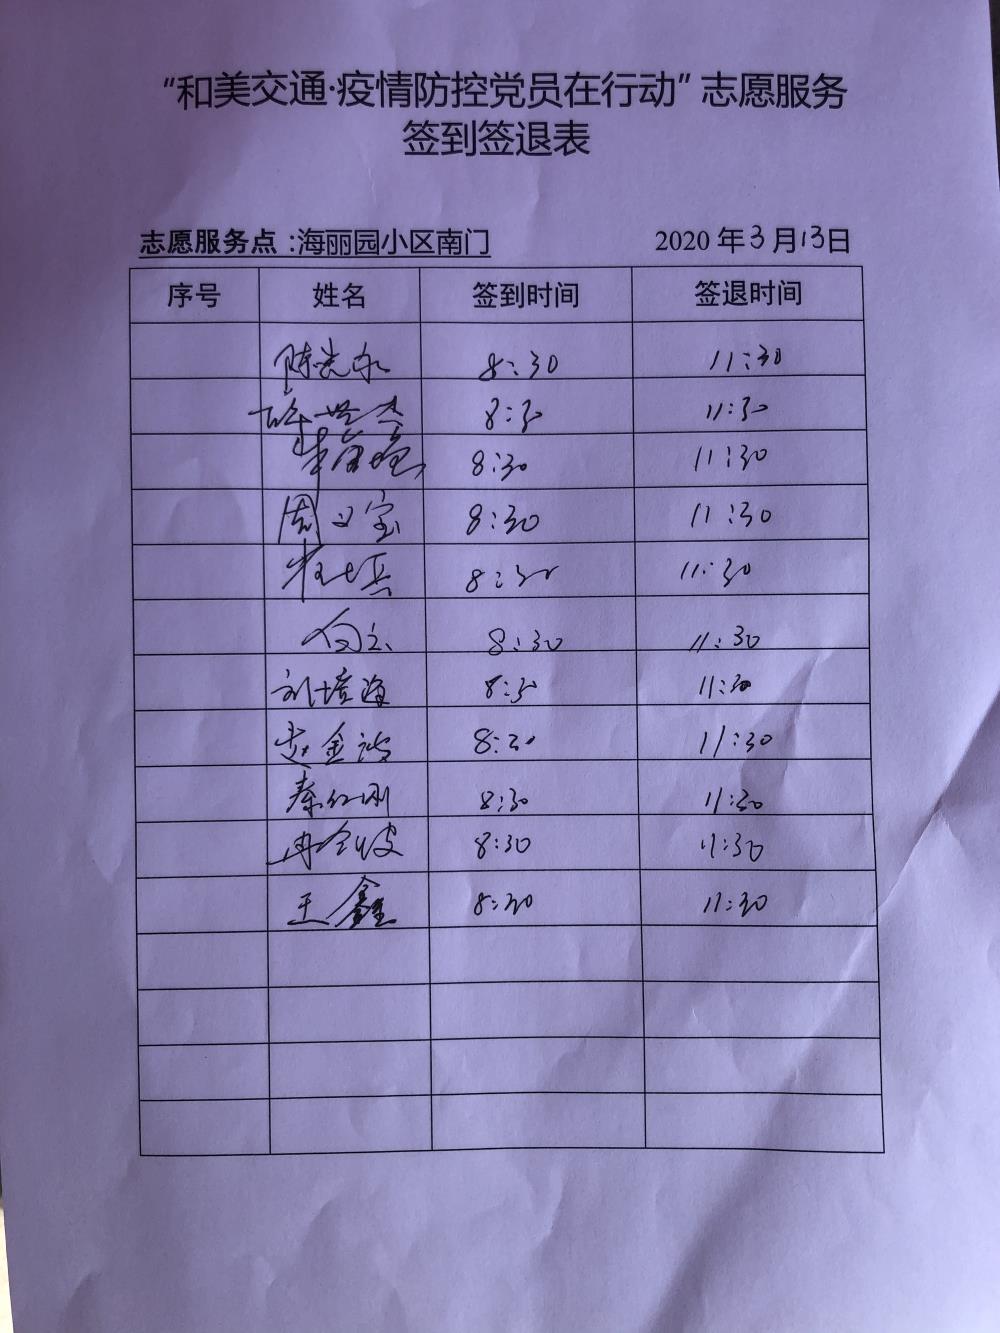 “和美交通·疫情防控党员在行动”志愿服务
签到签退表
志愿服务点：海丽园小区南门 2020年3月13日
序号 姓名 签到时间 签退时间
陈光永 8:30 11:30
8:30 11:30
8:30 11:30
周义宝 8:30 11:30
8:30 11:30
向立 8:30 11:30
刘培海 8:30 11:30
赵金波 8:30 11:30
秦红刚 8:30 11:30
冉令波 8:30 11:30
王鑫 8:30 11:30